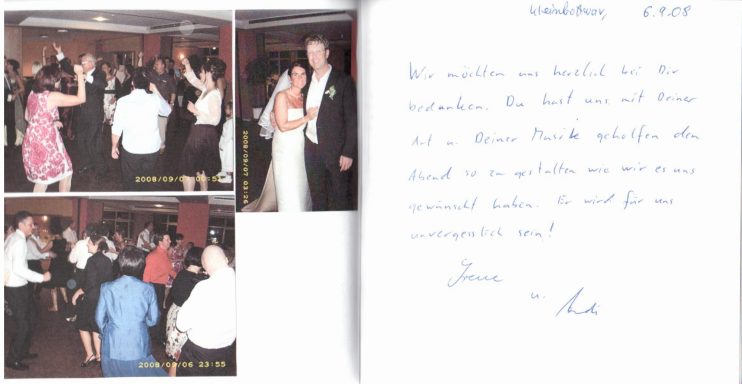 2008/09/0
2008/09/07 03:26
2008/09/06 23:55
Kleinbottwar, 6.9.08
Wir möchten uns herzlich bei Dir
bedanken. Du hast uns mit Deiner
Art u. Deiner Musik geholfen den
Abend so zu gestalten wie wir es uns
gewünscht haben. Er wird für uns
unvergesslich sein!
Irene
u. Andi